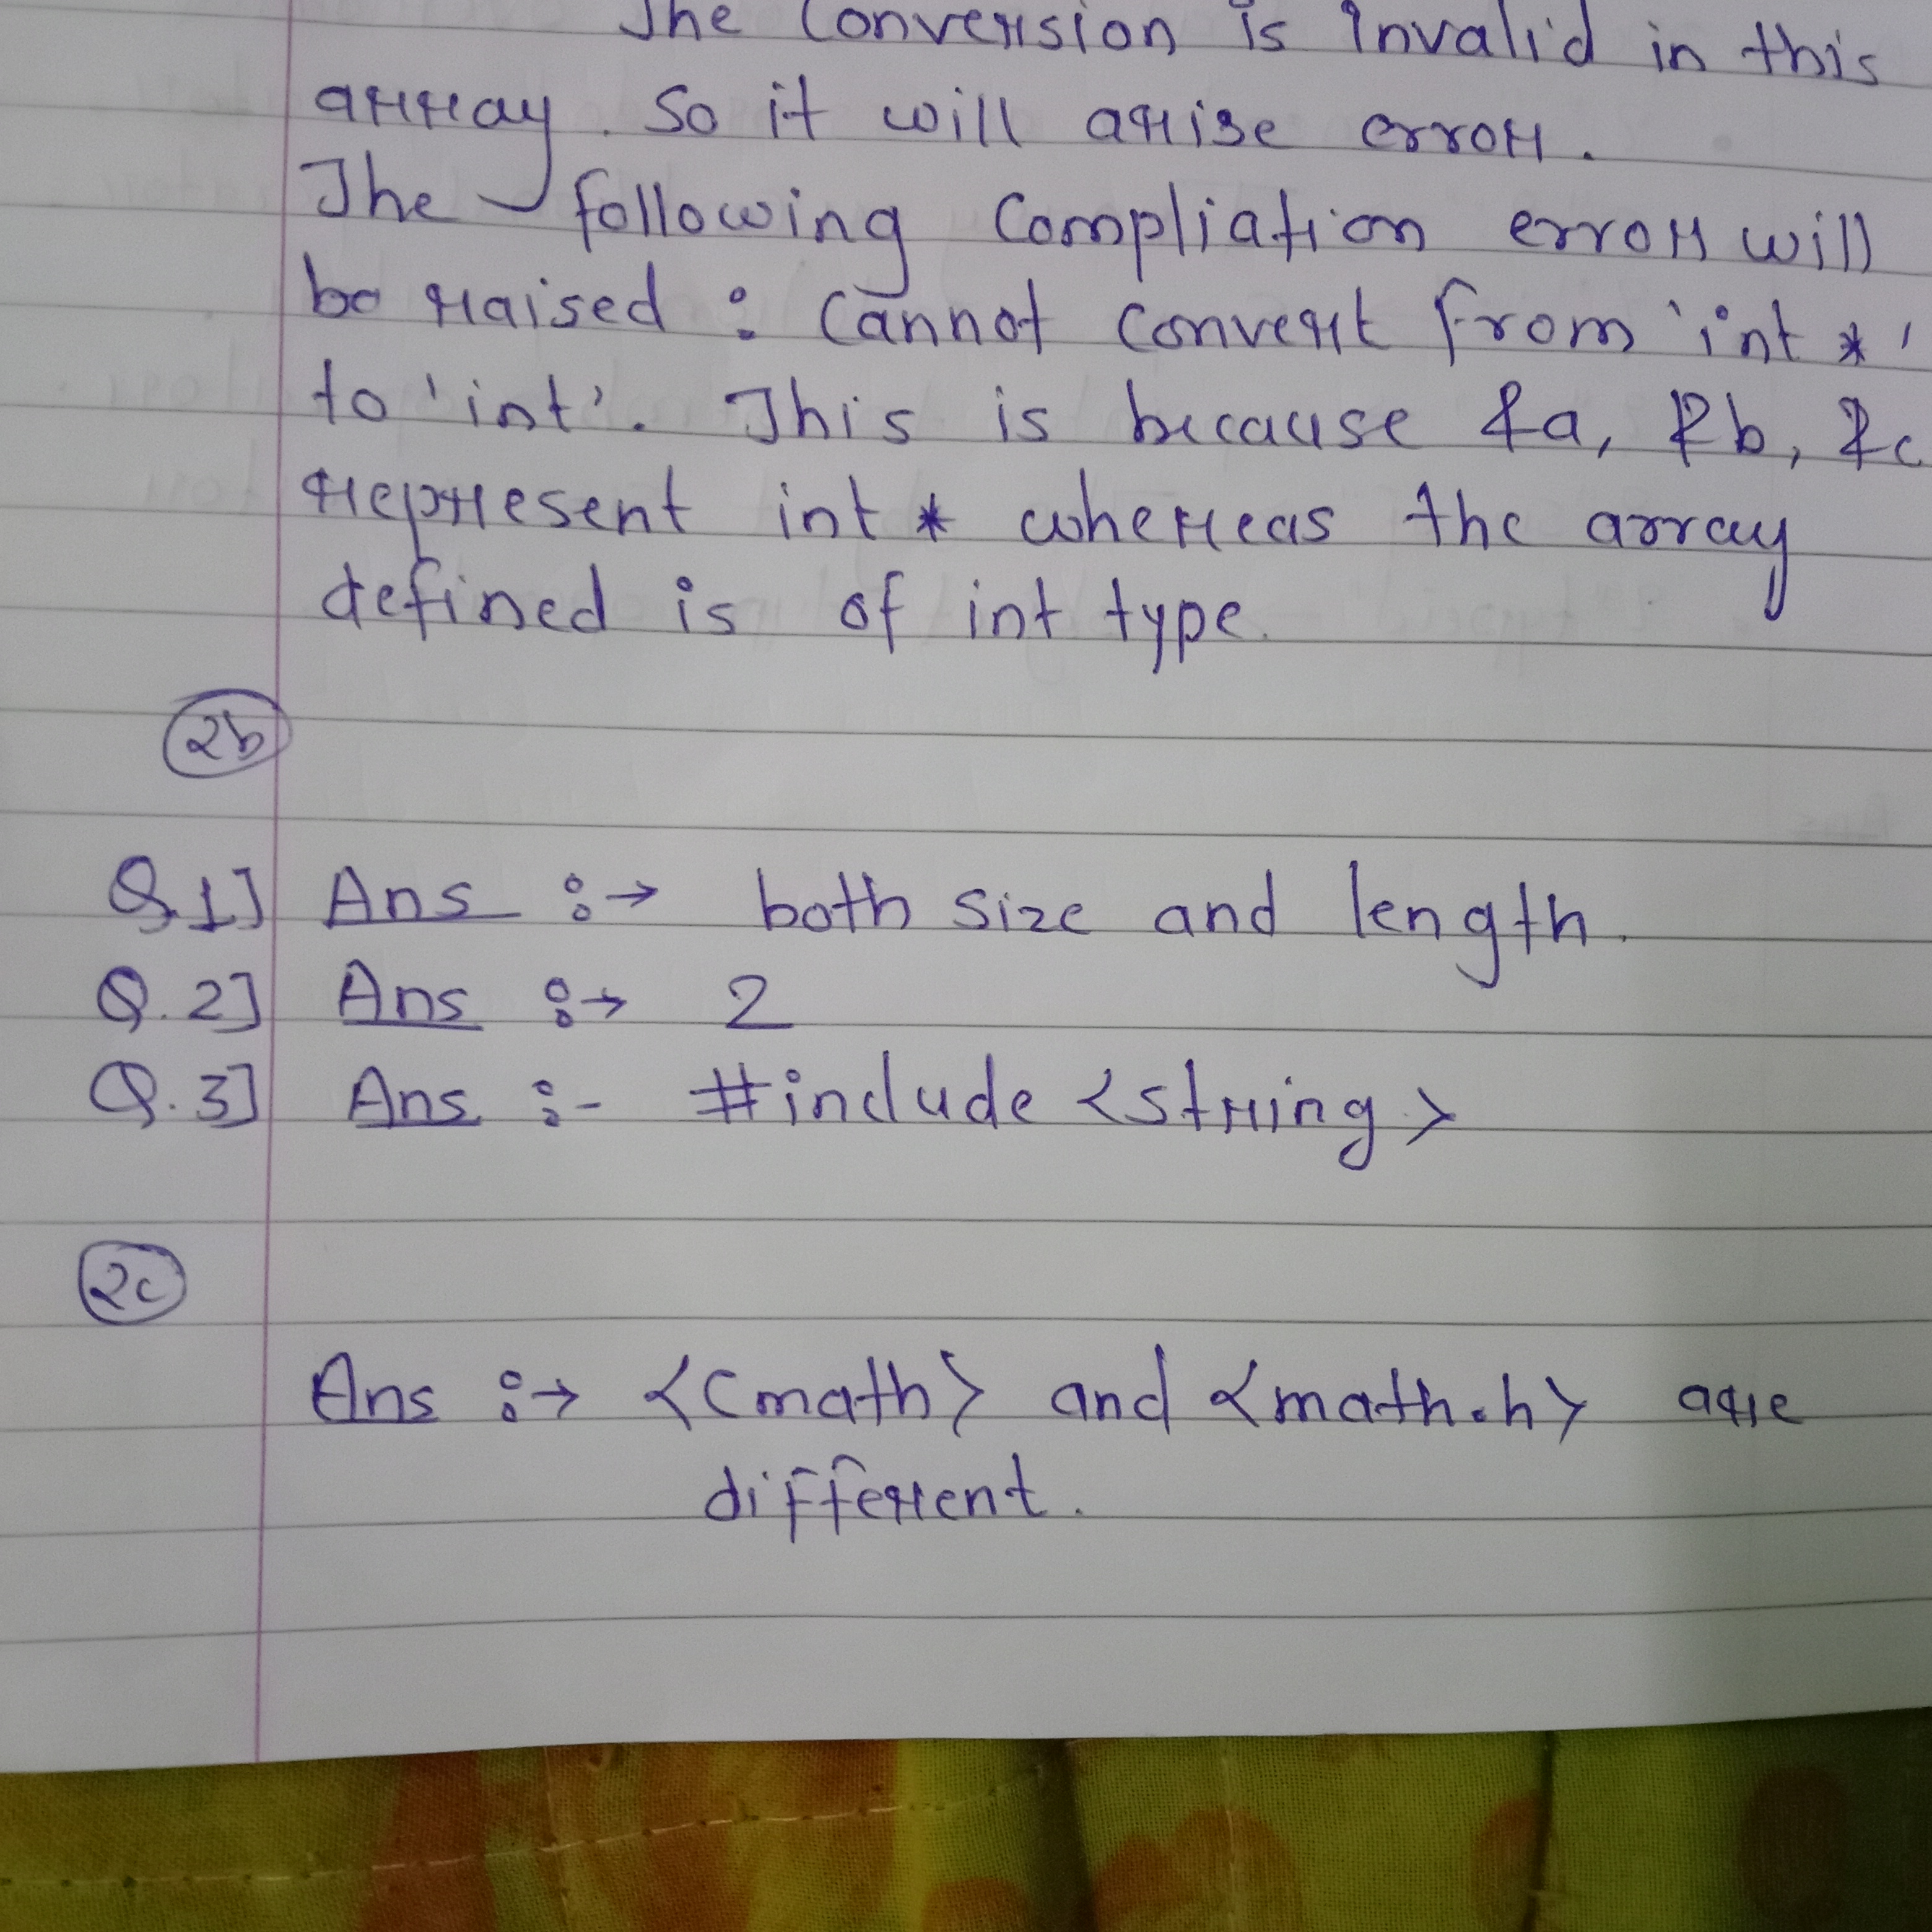 The Conversion is Invalid in this
array. So it will arise error.
The following Compliation error will
be raised : Cannot convert from 'int *'
to 'int'. This is because &a, &b, &c
represent int * whereas the array
defined is of int type.
2b
Q.1] Ans :→ both size and length.
Q.2] Ans :→ 2
Q.3] Ans :- #include <string>
2c
Ans :→ <cmath> and <math.h> are
different.